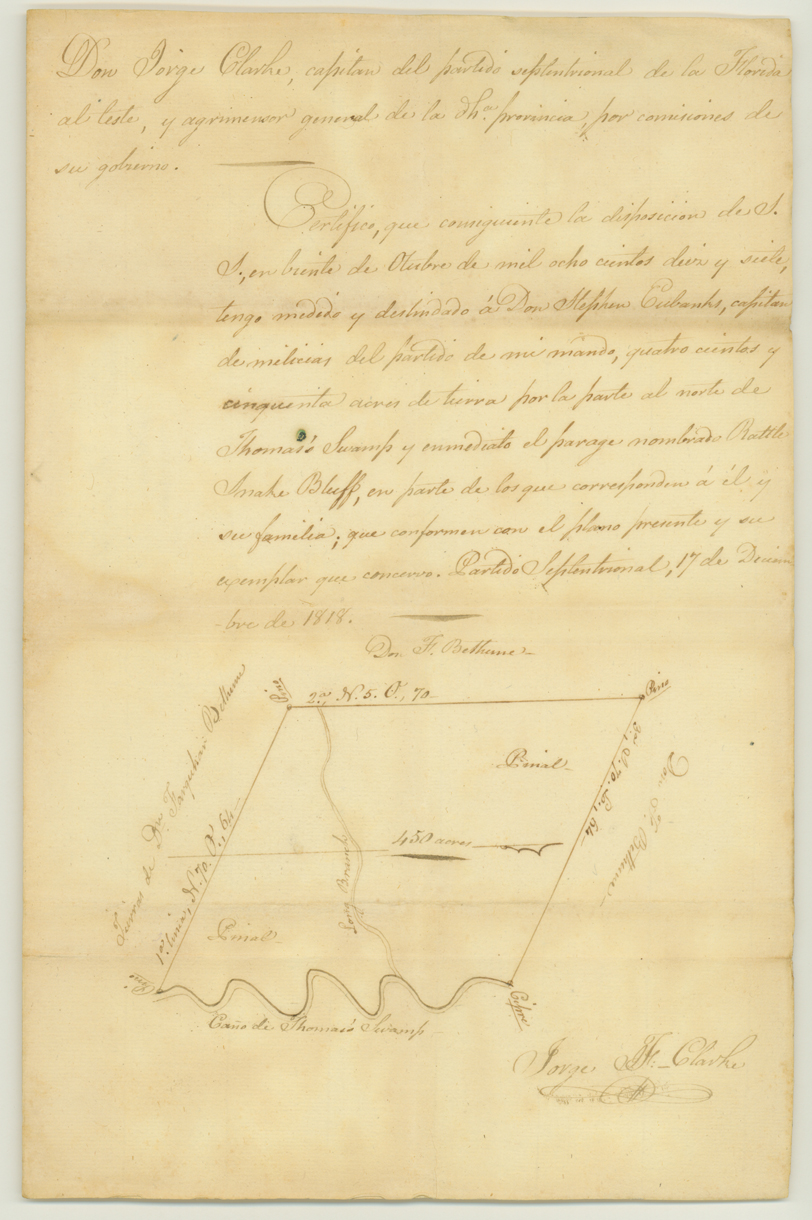 Don Jorge Clarke, capitan del partido septentrional de la Florida
al leste, y agrimensor general de la dha. provincia, por comisiones de
su gobierno.
Certifico, que consiguiente la disposicion de S.
S., en biente de Otubre de mil ocho cientos diez y siete,
tengo medido y deslindado á Don Stephen Eubanks, capitan
de milicias del partido de mi mando, quatro cientos y
cinquenta acres de tierra por la parte al norte de
Thomas's Swamp y enmediato el parage nombrado Rattle
Snake Bluff, en parte de los que corresponden á él y
su familia; que conformen con el plano presente y su
exemplar que concervo. Partido Septentrional, 17 de Deciem
-bre de 1818.
Don F. Bethune
Pino
2a., N. 5. O., 70
Pino
Tierras de Dn. Farquhar Bethune
1a. linea, N. 70. O., 64
Pinal
3a., S. 70. E., 64
Don F. Bethune
450 acres
Long Branch
Pinal
Pino
Cipre
Caño de Thomas's Swamp
Jorge J. F. Clarke